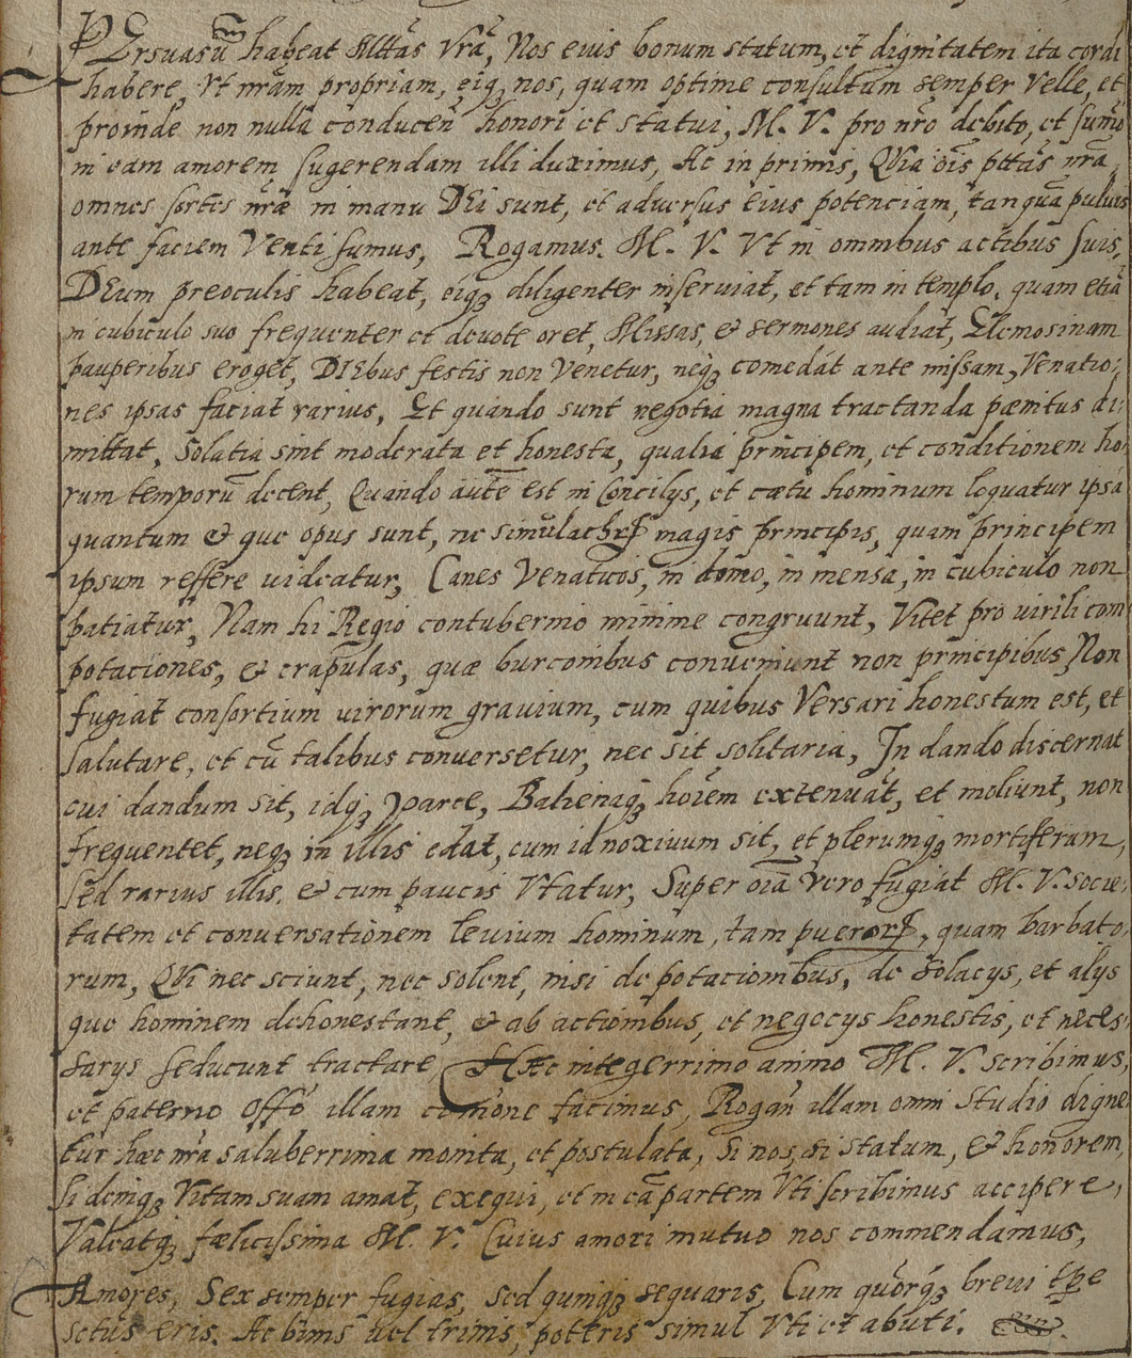 PErsuasū habeat Mttās Vrā, Nos eius bonum statum, et dignitatem ita cordi
habere, Vt nrām propriam, eiq₃ nos, quam optime consultum semper velle, et
proinde non nulla conducen̄ honori et statui, M. V. pro nr̄o debito, et sum̄o
in eam amorem sugerendam illi duximus, Ac in primis, QVia ōis pttās nrā,
omnes sortes nrǣ in manu DEi sunt, et adversus eius potenciam, tanquā puluis
ante faciem Venti sumus, Rogamus. M. V. Vt in omnibus actibus suis,
DEum preoculis habeat, eiq₃ diligenter inserviat, et tam in templo, quam etiā
in cubiculo suo frequenter et devote oret, Missas, & sermones audiat, Elemosinam
pauperibus eroget, DIEbus festis non Venetur, neq₃ comedat ante missam, Venatio:
nes ipsas faciat rarius, Et quando sunt negotia magna tractanda pænitus di:
mittat, Solatia sint moderata et honesta, qualia principem, et conditionem ho:
rum temporū decent, Quando āute est in Concilys, et cætu hominum loquatur ipsa
quantum & que opus sunt, ne simulachrꝝ magis principis, quam principem
ipsum reffere uideatur, Canes Venaticos, in domo, in mensa, in cubiculo non
patiatur, Nam hi Regio contubernio minime congruunt, Vitet pro uirili com
potaciones, & crapulas, quæ burconibus conueniunt non principibus, Non
fugiat consortium uirorum grauium, cum quibus Versari honestum est, et
salutare, et cū talibus conversetur, nec sit solitaria, In dando discernat
cui dandum sit, idq₃ parce, Balienaq₃ hoīem extenuāt, et moliunt, non
frequentet, neq₃ in illis edat, cum id noxiuum sit, et plerumq₃ mortiferum,
Sed rarius illis, & cum paucis Vtatur, Super oīa Vero fugiat M. V. socie:
tatem et conversationem leuium hominum, tam puerorꝝ, quam barbato:
rum, QVi nec sciunt, nec solent, nisi de potacionibus, de Solacys, et alys
que hominem dehonestant, & ab actionibus, et negocys honestis, et neces:
sarys seducunt tractare, HÆc integerrimo animo M. V. scribimus,
et paterno Offō illam facimus, Rogan̄ illam omni Studio digne
tur hæc nrā saluberrima monita, et postulata, Si nos, si statum, & honorem,
Si deniq₃ Vitam suam amat, exequi, et in eā partem Vti scribimus accipere,
Valeatq₃ fælicissima M. V. Cuius amori mutuo nos commendamus,
Amores, Sex semper fugias, sed quinq₃ sequaris, Cum quorq₃ brevi tp̄e
setus eris. Ac binis uel trinis, potteris simul Vti et abuti.